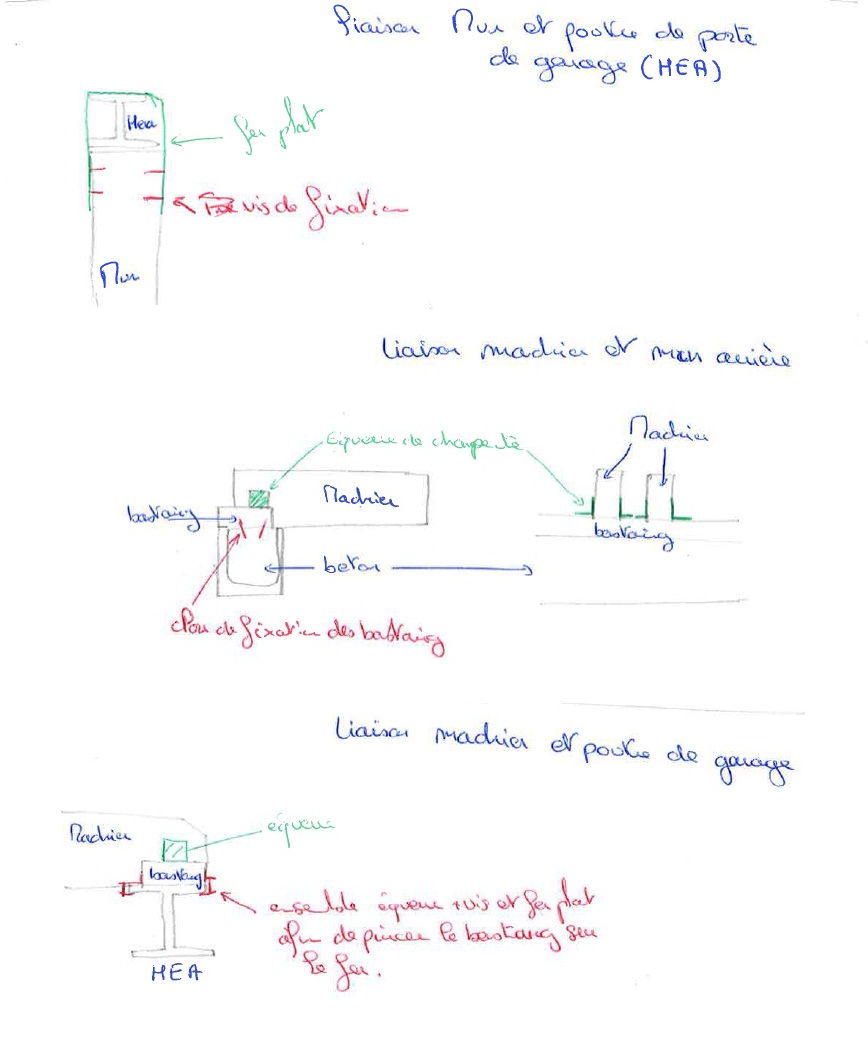 Liaison Mur et poutre de porte
de garage (HEA)
Hea
fer plat
vis de fixation
Mur
Liaison madrier et mur arrière
Madrier
équerre de charpente
Madrier
bastaing
bastaing
beton
Clou de fixation des bastaing
Liaison madrier et poutre de garage
équerre
Madrier
bastaing
ensemble équerre + vis et fer plat
afin de pincer le bastaing sur
le fer.
HEA